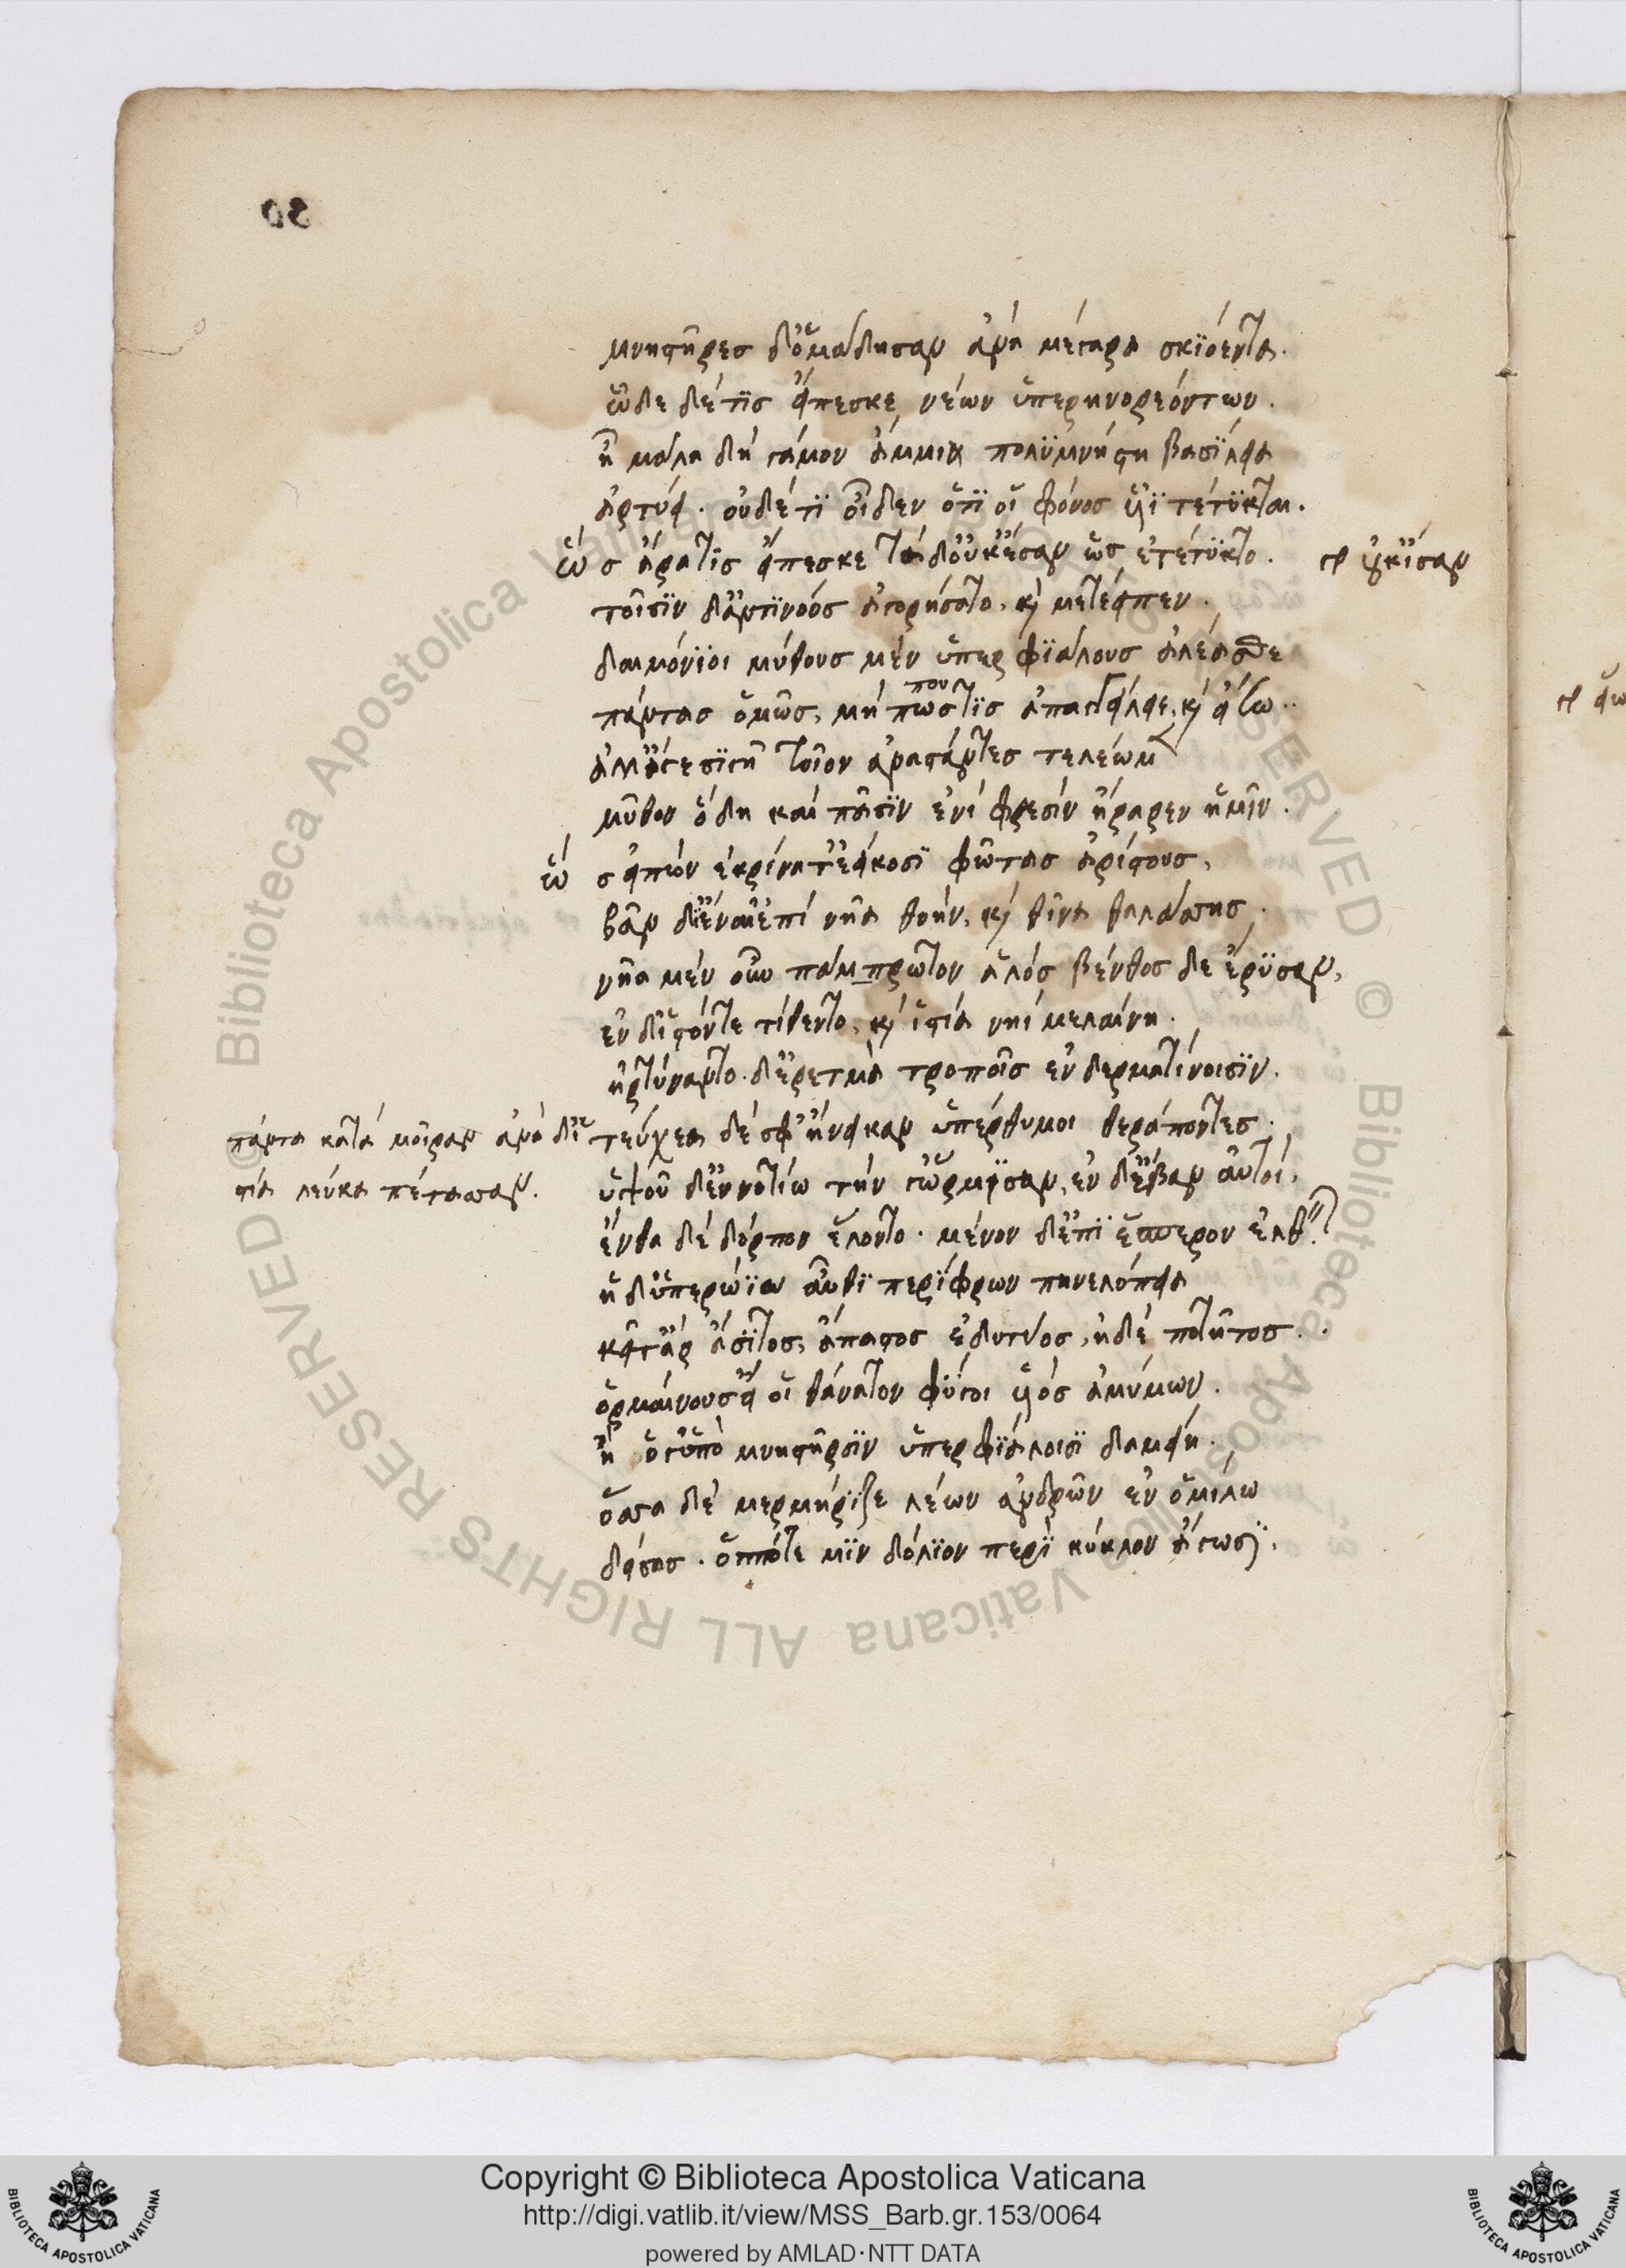 μνηστῆρες δ' ὁμάδησαν ἀνὰ μέγαρα σκϊόεντα.
ὧδε δέ τϊς εἴπεσκε νέων ὑπερηνορεόντων.
ἦ μάλα δὴ γάμον ἄμμι πολϋμνήστη βασΐλεια
ἀρτύει. οὐδέ τϊ οἶδεν ὅτϊ οἱ φόνος υἷϊ τέτϋκται.
ὣς ἄρα τὶς εἴπεσκε τὰ δ' οὐκ ἴσαν ὡς ἐτέτϋκτο. γρ οὐκ ἴσαν
τοῖσϊν δ' ἀντΐνοος ἀγορήσατο, καὶ μετέειπεν.
δαιμόνϊοι μύθους μὲν ὑπερφϊάλους ἀλέασθε
πάντας ὁμῶς, μή πως τϊς ἀπαγγείλειε, καὶ εἴσω..
που
ἀλλ' ἄγε σϊγῆ τοῖον ἀναστάντες τελέωμεν
μῦθον ὃ δὴ καὶ πᾶσϊν ἐνὶ φρεσὶν ἤραρεν ἡμῖν.
ὣς εἰπὼν ἐκρίνατ' ἐείκοσϊ φῶτας ἀρίστους,
βὰν δ' ἰέναι ἐπὶ νῆα θοὴν, καὶ θῖνα θαλάσσης.
νῆα μὲν οὖν πάμπρωτον ἁλὸς βένθος δε ἔρϋσαν,
ἐν δ' ἱστόν τε τίθεντο, καὶ ἱστία νηῒ μελαίνη.
ἠρτύναντο. δ' ἐρετμὰ τροποῖς ἐν δερματίνοισϊν.
πάντα κατὰ μοῖραν ἀνὰ δ' ἱ
στία λευκὰ πέτασσαν.
τεύχεα δέ σφ' ἤνεικαν ὑπέρθυμοι θεράποντες.
ὑψοῦ δ' ἐν νοτίω τήν γ' ὥρμϊσαν, ἐν δ' ἔβαν αὐτοί.
ἔνθα δὲ δόρπον ἕλοντο. μένον δ' ἐπϊ ἕσπερον ἐλθεῖν.
ἡ δ' ὑπερωΐω αὖθϊ περΐφρων πηνελόπεια
κεῖτ' ἄρ ἄσϊτος, ἄπαστος ἐδητύος, ἠδὲ ποτῆτος..
ὁρμαίνουσ' εἴ οἱ θάνατον φύγοι υἱὸς ἀμύμων.
ἢ ὅγ' ὑπὸ μνηστῆρσϊν ὑπερφϊάλοισϊ δαμείη.
ὅσσα δὲ μερμήρϊξε λέων ἀνδρῶν ἐν ὁμίλω
δείσας. ὁππότε μϊν δόλϊον περϊ κύκλον ἄγωσϊ.
Copyright © Biblioteca Apostolica Vaticana
http://digi.vatlib.it/view/MSS_Barb.gr.153/0064
powered by AMLAD·NTT DATA